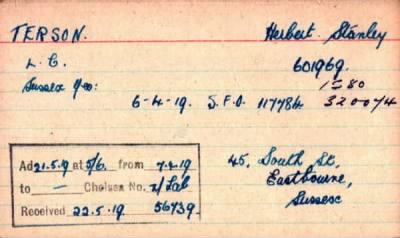 TERSON. Herbert Stanley
L. C. 601969.
Sussex Yeo: 1580
6-4-19. S.F.D. 117784 320074
Ad 21.5.19 at 5/6. from 7.4.19
to — Chelsea No. 2/Lab
Received 22.5.19. 56739.
45, South St,
Eastbourne,
Sussex